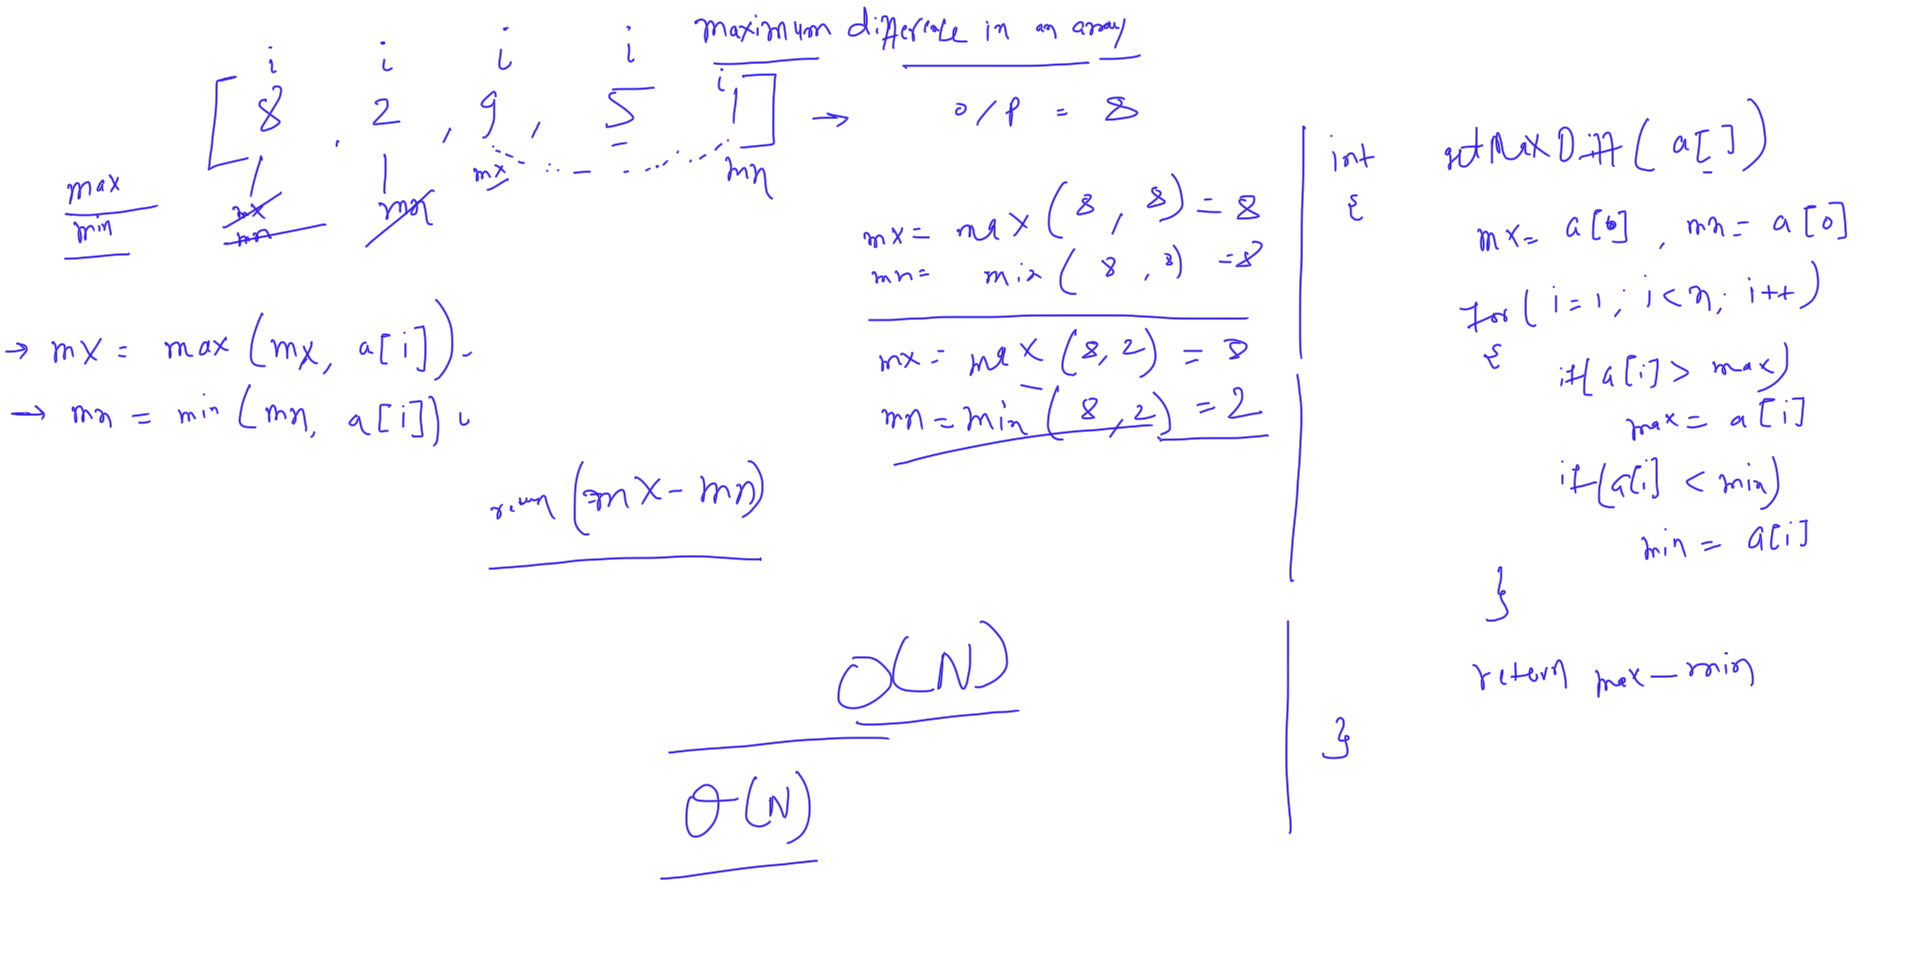 maximum difference in an array
i i i i i
[ 8 , 2 , 9 , 5 1 ] → o/p = 8
mx mn
max
min
mx
mn
mn
→ mx = max (mx, a[i]).
→ mn = min (mn, a[i]).
return (mx - mn)
mx = max (8, 8) = 8
mn = min (8, 8) = 8
mx = max (8, 2) = 8
mn = min (8, 2) = 2
O(N)
θ(N)
int getMaxDiff( a[] )
{
mx = a[0] , mn = a[0]
for( i = 1; i < n; i++)
{
if( a[i] > max)
max = a[i]
if( a[i] < min)
min = a[i]
}
return max - min
}